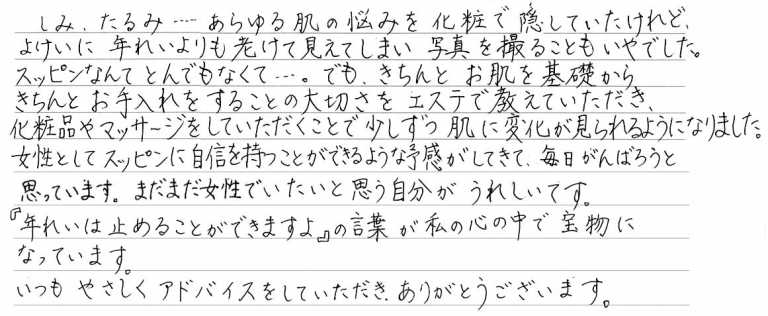 しみ、たるみ…… あらゆる肌の悩みを 化粧で隠していたけれど、
よけいに 年れいよりも老けて見えてしまい 写真を撮ることもいやでした。
スッピンなんて とんでもなくて…。でも、きちんと お肌を基礎から
きちんと お手入れをすることの大切さを エステで教えていただき、
化粧品やマッサージをしていただくことで少しずつ 肌に変化が見られるようになりました。
女性としてスッピンに自信を持つことができるような予感がしてきて、毎日がんばろうと
思っています。まだまだ女性でいたいと思う自分が うれしいです。
『年れいは止めることができますよ』の言葉が私の心の中で宝物に
なっています。
いつも やさしく アドバイスをしていただき、ありがとうございます。